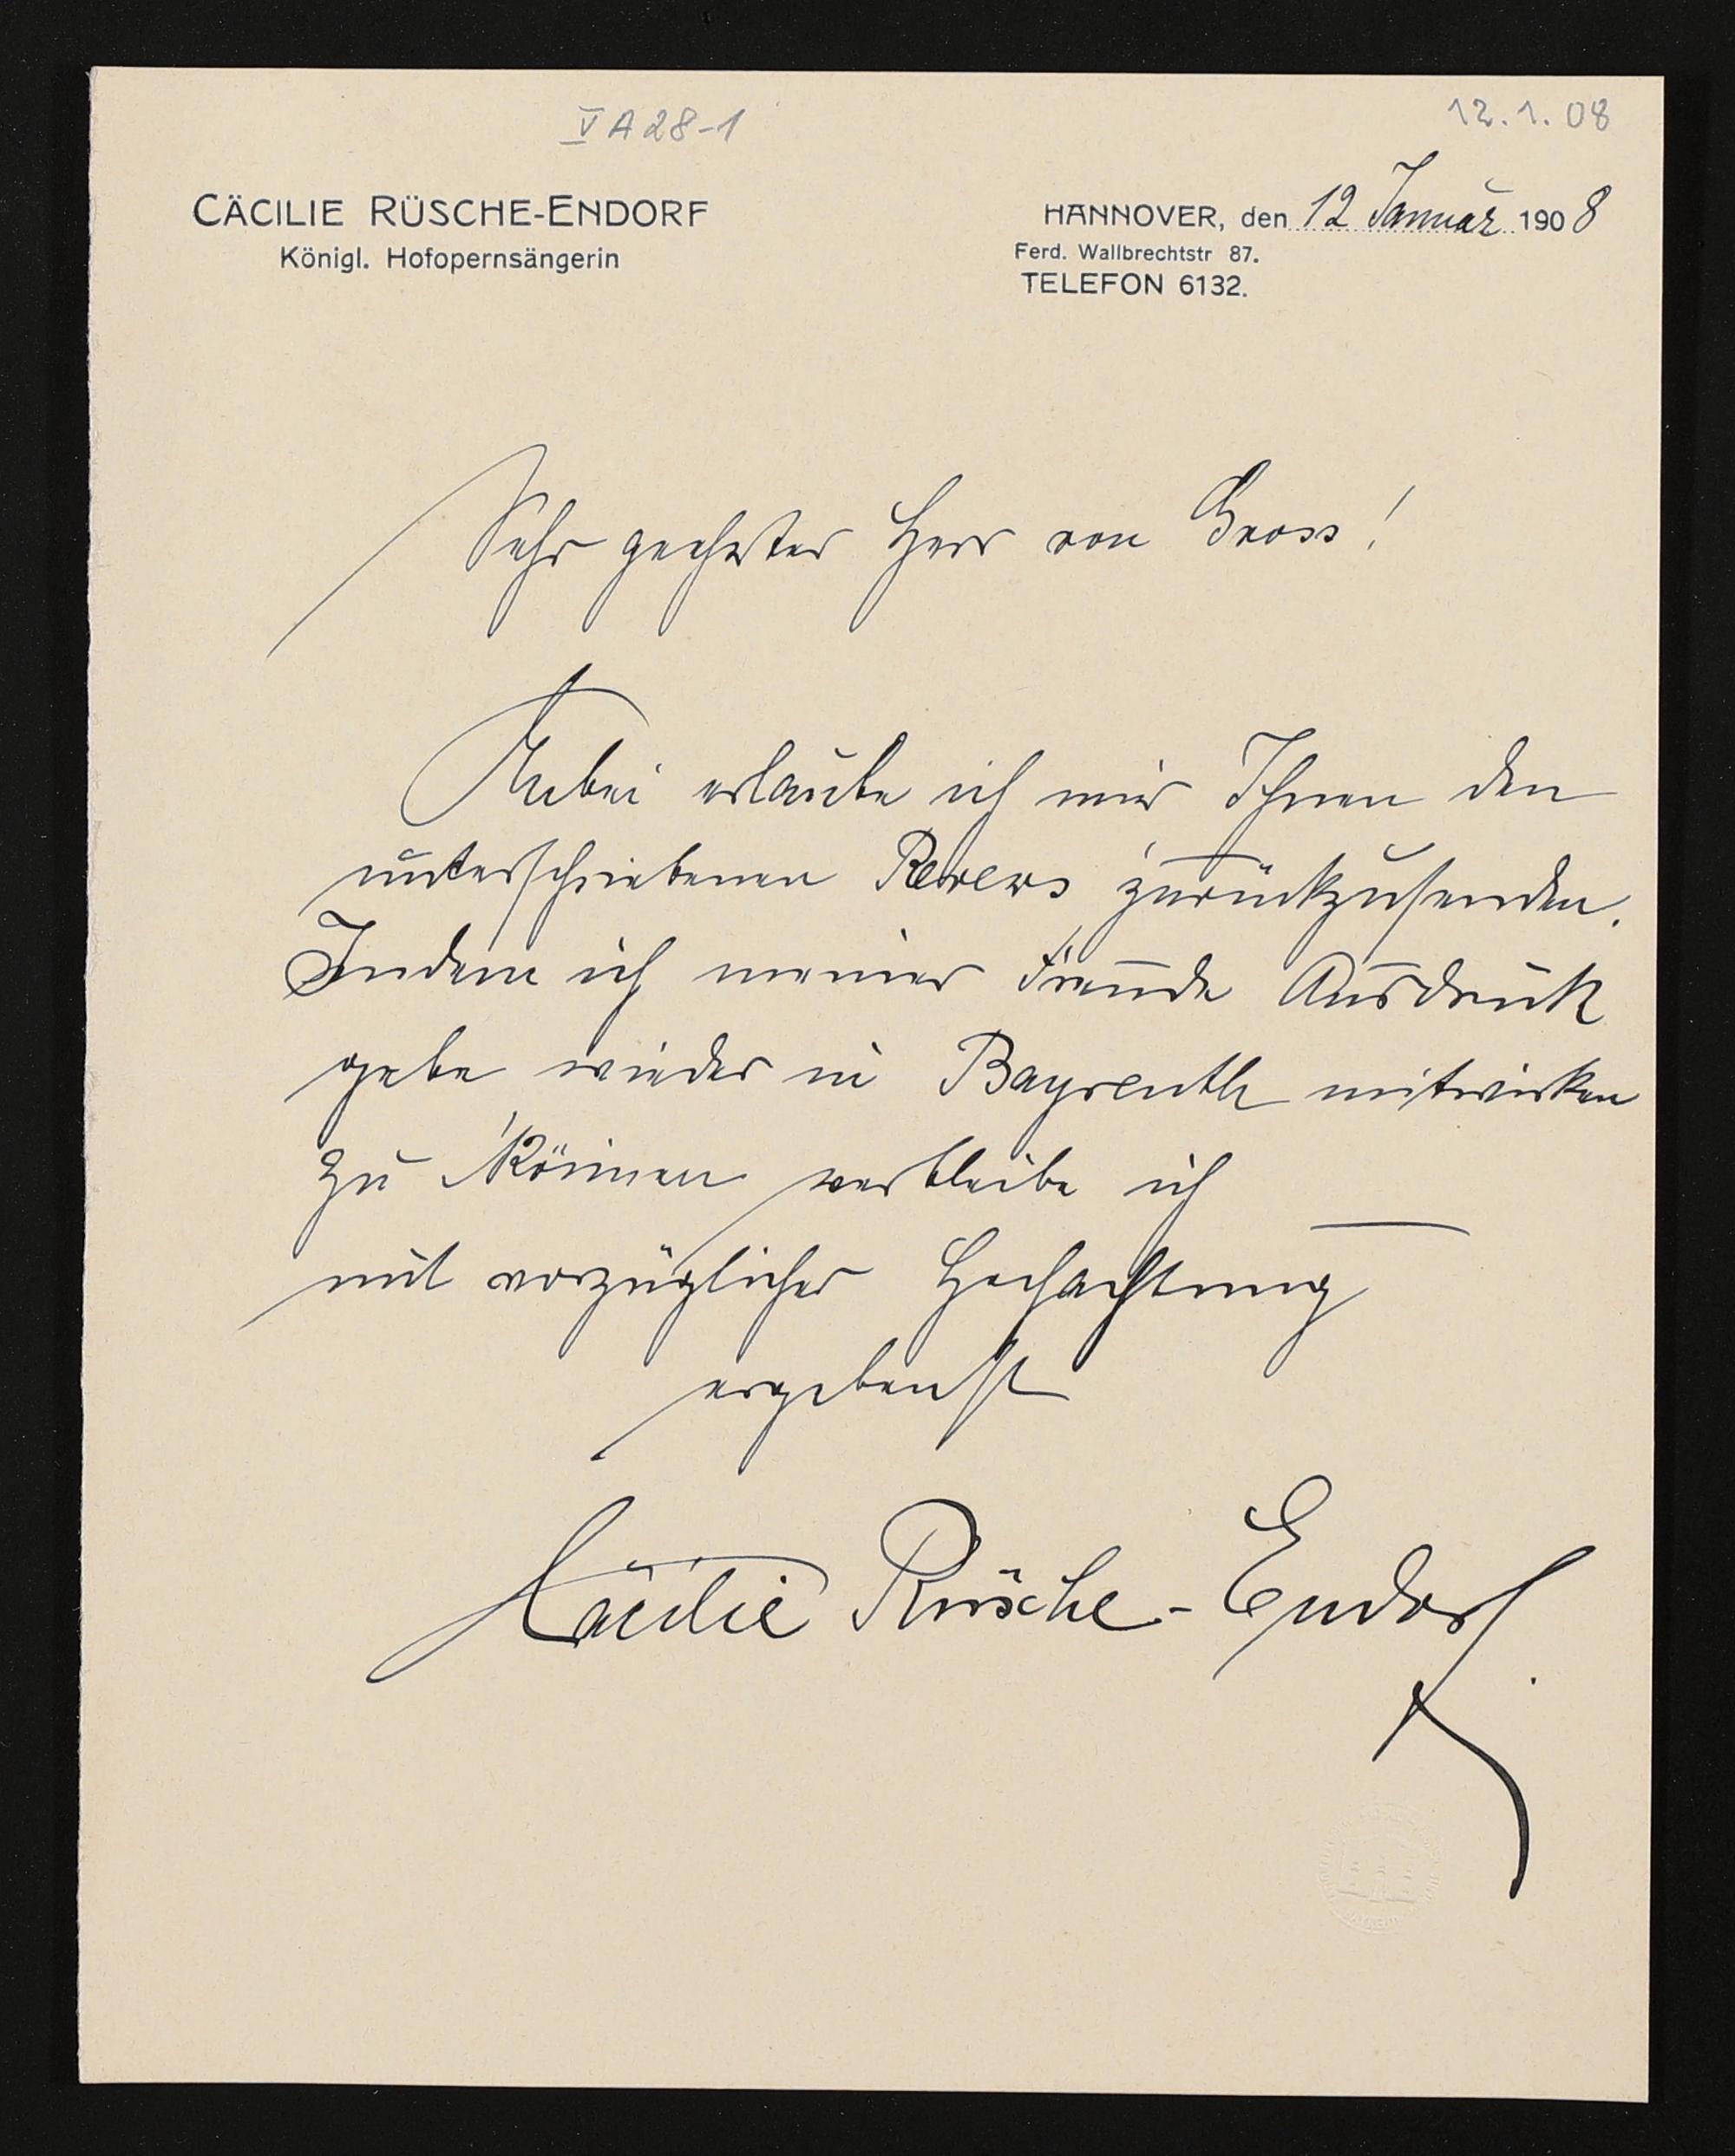 V A 28-1
12.1.08
CÄCILIE RÜSCHE-ENDORF
Königl. Hofopernsängerin
HANNOVER, den 12 Januar 1908
Ferd. Wallbrechtstr 87.
TELEFON 6132.
Sehr geehrter Herr von Gross!
Anbei erlaube ich mir Ihnen den
unterschriebenen Revers zurückzusenden.
Indem ich meiner Freude Ausdruck
gebe wieder in Bayreuth mitwirken
zu können verbleibe ich
mit vorzüglicher Hochachtung
ergebenst
Cäcilie Rüsche-Endorf.